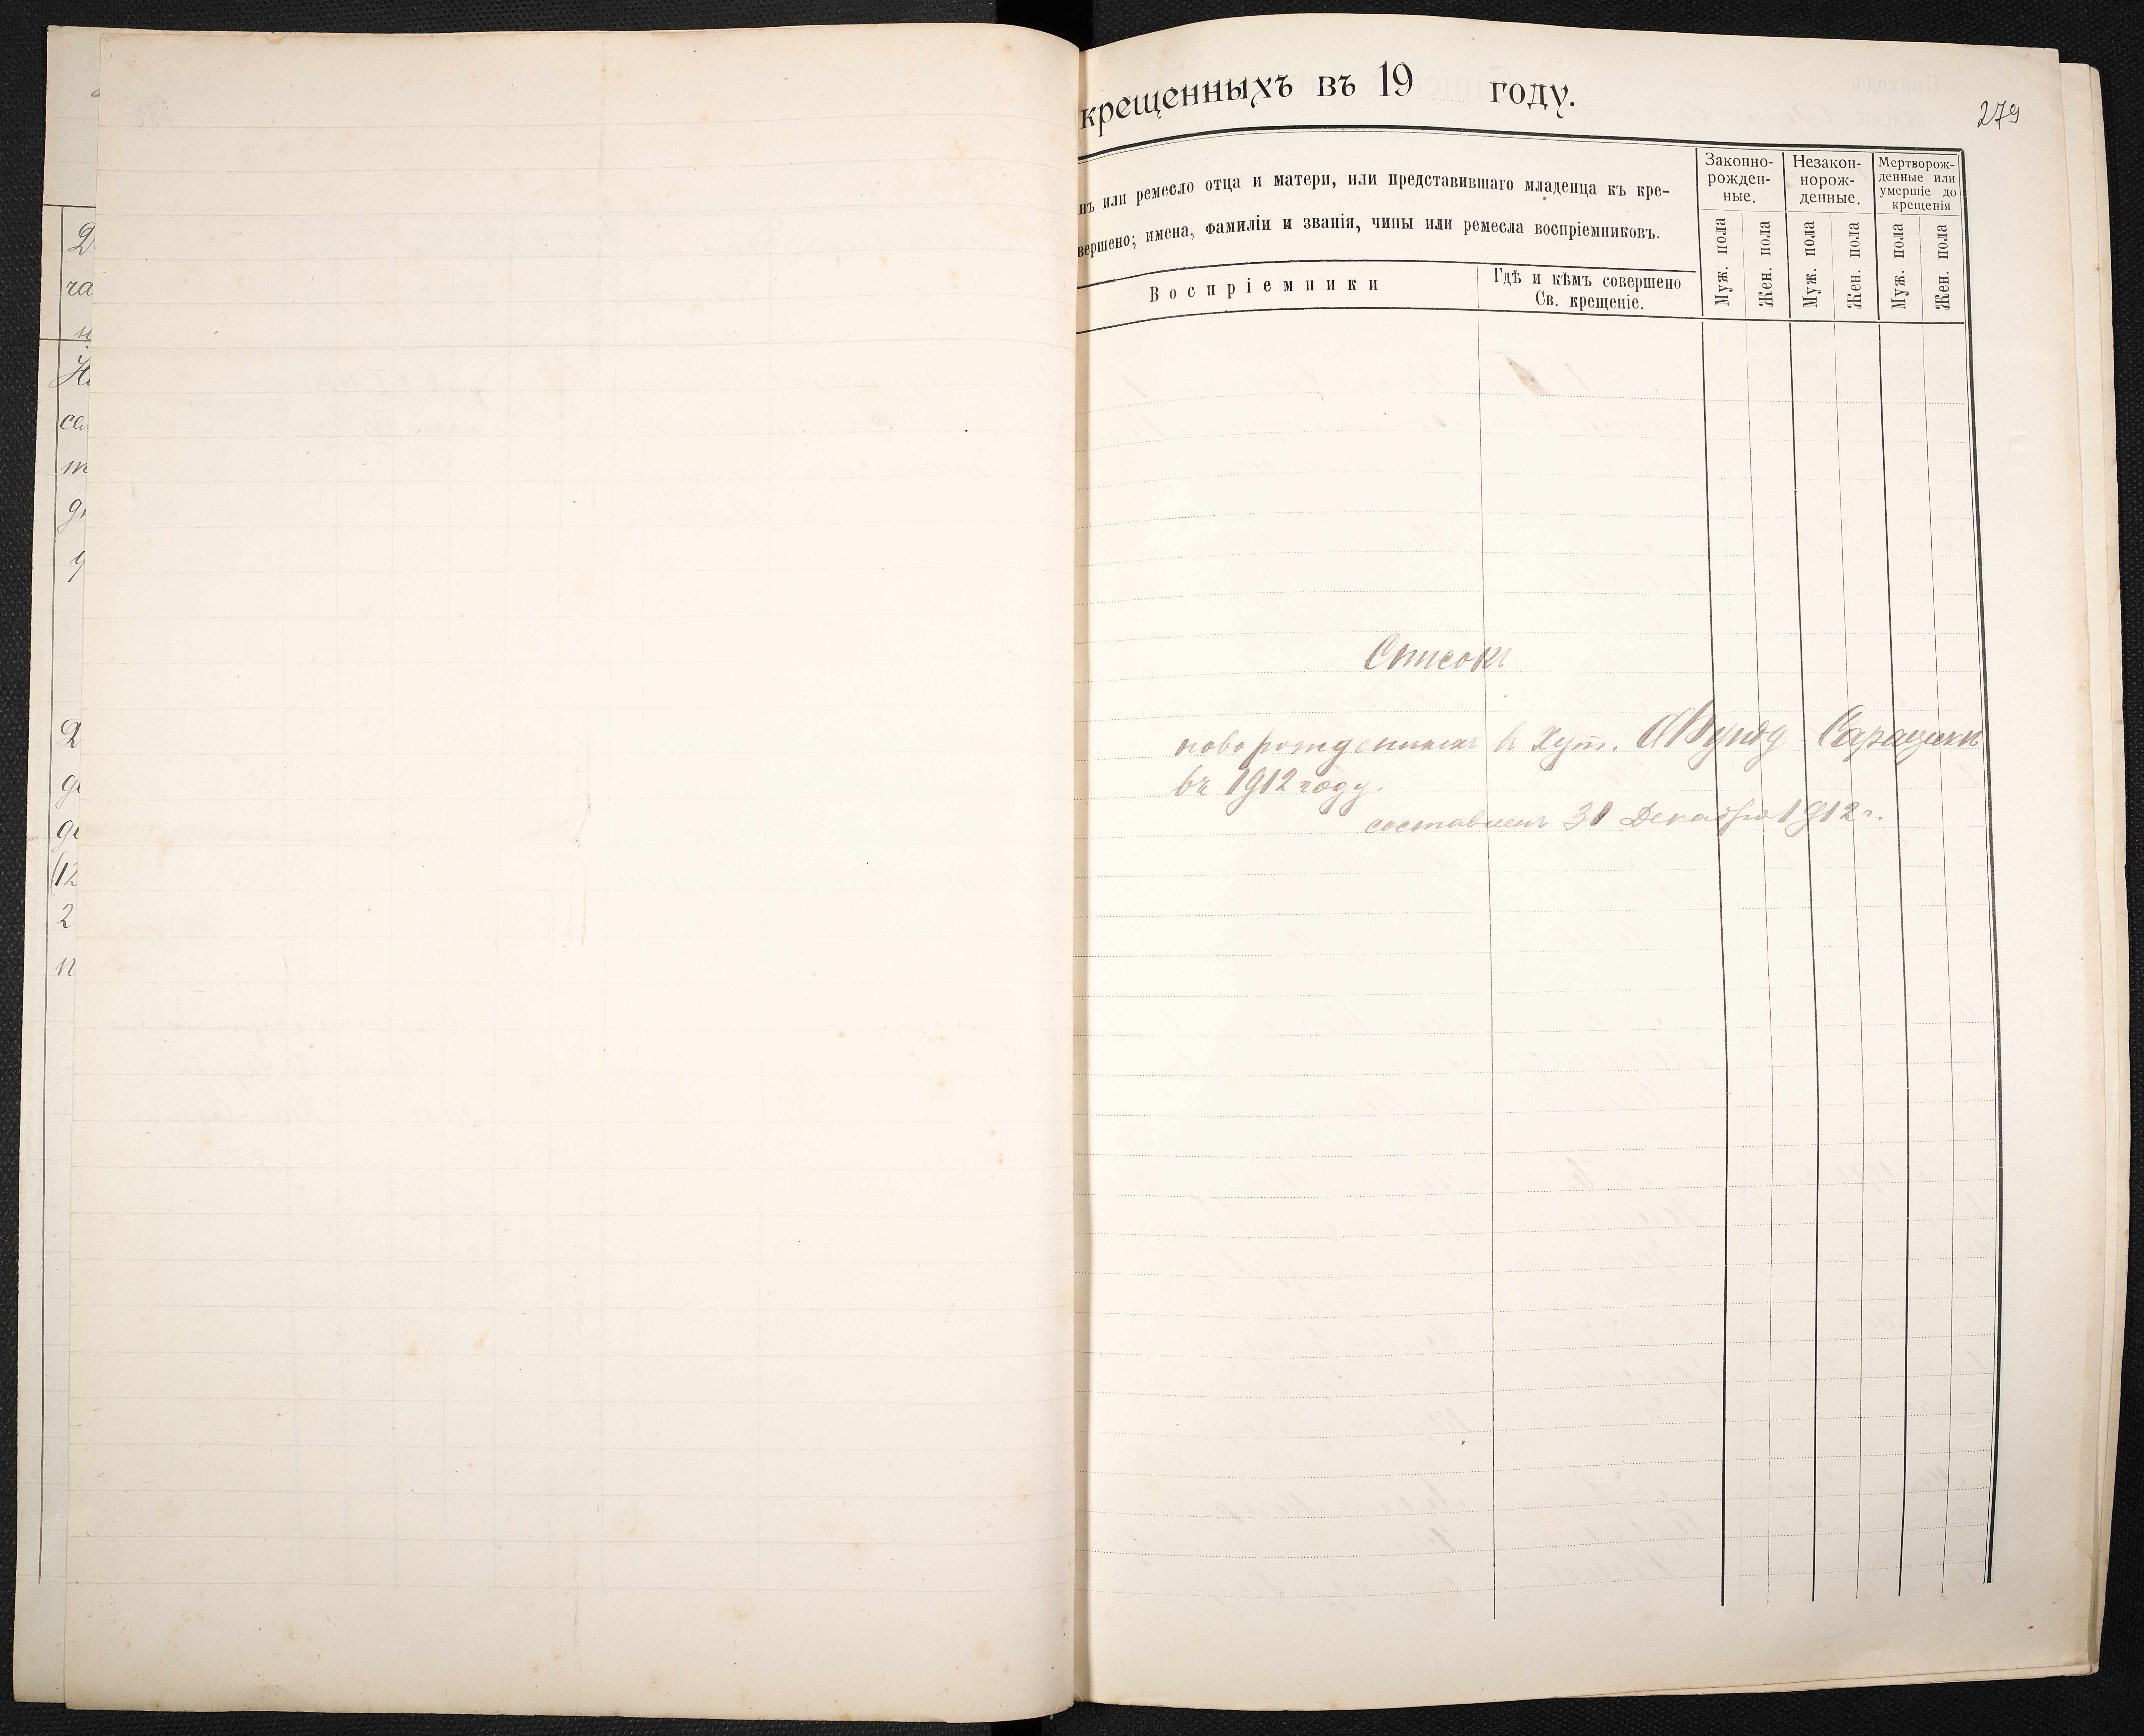 крещенныхъ въ 19 году.
279
или ремесло отца и матери, или представившаго младенца къ кре-
вершено; имена, фамиліи и званія, чины или ремесла воспріемниковъ.
Воспріемники
Гдѣ и кѣмъ совершено
Св. крещеніе.
Законно-
рожден-
ные.
Незакон-
норож-
денные.
Мертворож-
денные или
умершіе до
крещенія
Муж. пола
Жен. пола
Муж. пола
Жен. пола
Муж. пола
Жен. пола
Списокъ
новорожденныхъ в Хут.
въ 1912 году.
составленъ 31 Декабря 1912 г.